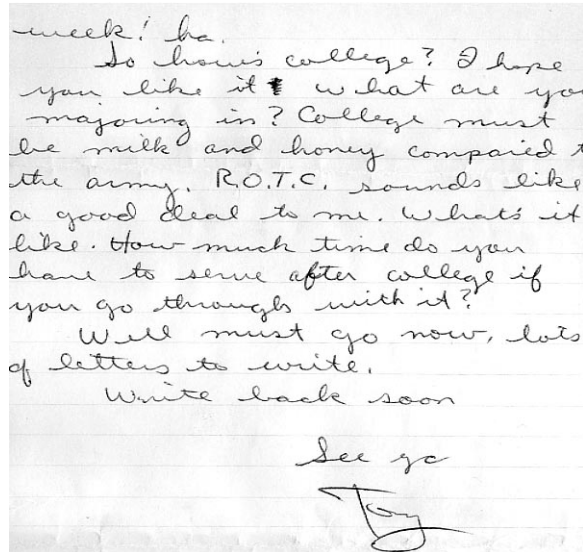 week! ha.
So how's college? I hope
you like it what are you
majoring in? College must
be milk and honey compared t
the army. R.O.T.C. sounds like
a good deal to me. What's it
like. How much time do you
have to serve after college if
you go through with it?
Well must go now, lots
of letters to write.
Write back soon
See ya
Tony